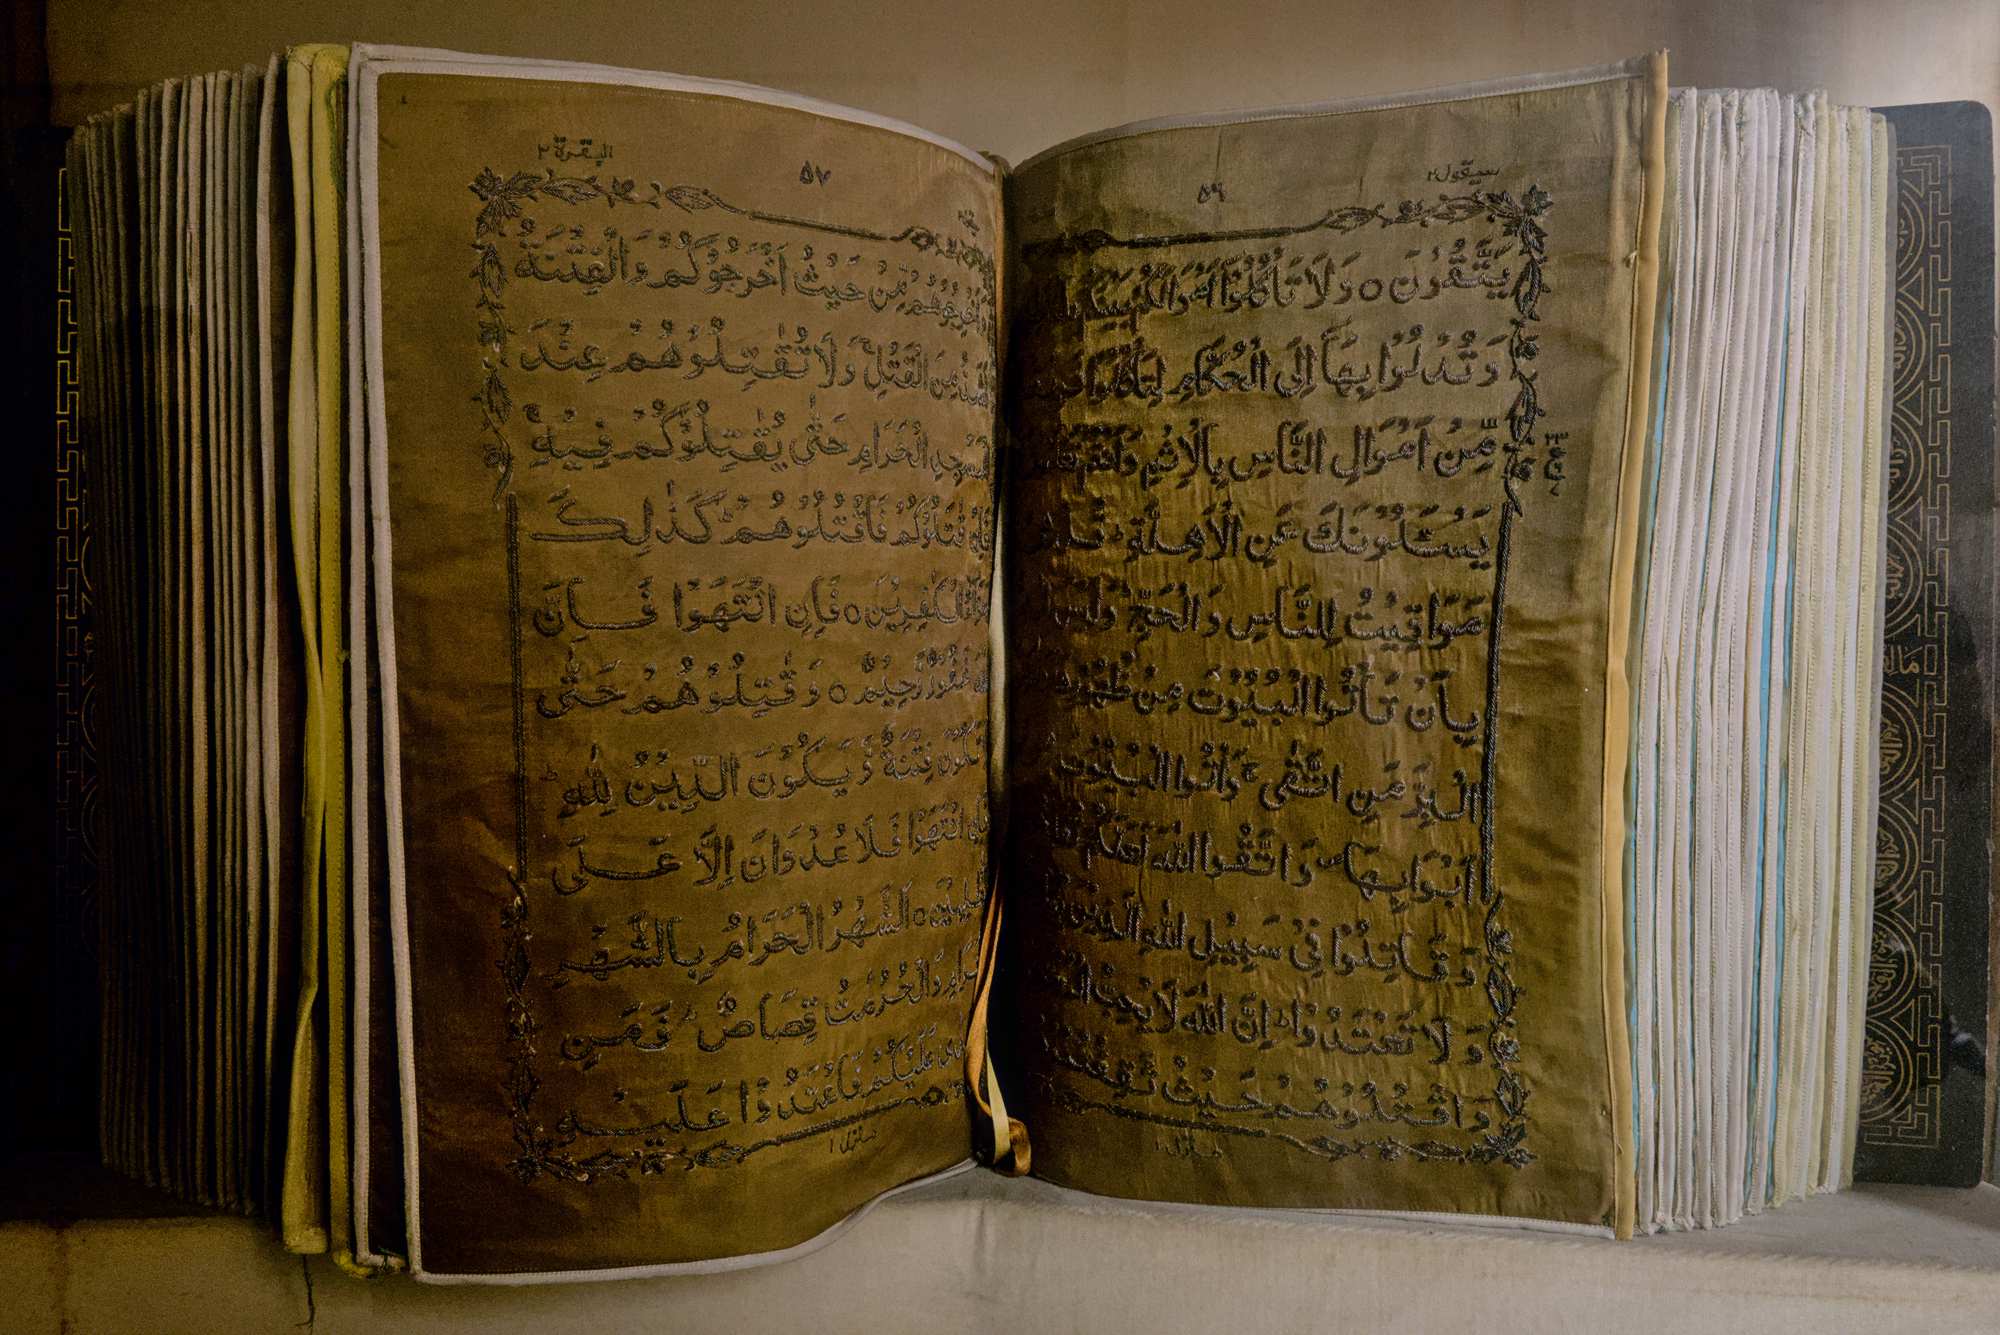 سيقول ٢
٥٦
يَتَّقُوْنَ ○ وَلَا تَأْكُلُوْٓا اَمْوَالَكُمْ بَيْنَكُمْ
وَتُدْلُوْا بِهَآ اِلَى الْحُكَّامِ لِتَاْكُلُوْا فَرِيْقًا
مِّنْ اَمْوَالِ النَّاسِ بِالْاِثْمِ وَاَنْتُمْ
يَسْـَٔلُوْنَكَ عَنِ الْاَهِلَّةِ ؕ قُلْ
مَوَاقِيْتُ لِلنَّاسِ وَالْحَجِّ ؕ وَلَيْسَ
بِاَنْ تَاْتُوا الْبُيُوْتَ مِنْ ظُهُوْرِهَا
الْبِرَّ مَنِ اتَّقٰى ۚ وَاْتُوا الْبُيُوْتَ
اَبْوَابِهَا ۪ وَاتَّقُوا اللّٰهَ لَعَلَّكُمْ
وَقَاتِلُوْا فِيْ سَبِيْلِ اللّٰهِ الَّذِيْنَ
وَلَا تَعْتَدُوْا ؕ اِنَّ اللّٰهَ لَا يُحِبُّ
وَاقْتُلُوْهُمْ حَيْثُ ثَقِفْتُمُوْ
منزل ١
البقرة ٢
٥٧
مِّنْ حَيْثُ اَخْرَجُوْكُمْ وَالْفِتْنَةُ
مِنَ الْقَتْلِ ۚ وَلَا تُقٰتِلُوْهُمْ عِنْدَ
الْحَرَامِ حَتّٰى يُقٰتِلُوْكُمْ فِيْهِ ۚ
قٰتَلُوْكُمْ فَاقْتُلُوْهُمْ ؕ كَذٰلِكَ
الْكٰفِرِيْنَ ○ فَاِنِ انْتَهَوْا فَاِنَّ
غَفُوْرٌ رَّحِيْمٌ ○ وَقٰتِلُوْهُمْ حَتّٰى
تَكُوْنَ فِتْنَةٌ وَّيَكُوْنَ الدِّيْنُ لِلّٰهِ ؕ
انْتَهَوْا فَلَا عُدْوَانَ اِلَّا عَلَى
الظّٰلِمِيْنَ ○ اَلشَّهْرُ الْحَرَامُ بِالشَّهْرِ
وَالْحُرُمٰتُ قِصَاصٌ ؕ فَمَنِ
عَلَيْكُمْ فَاعْتَدُوْا عَلَيْهِ
منزل ١